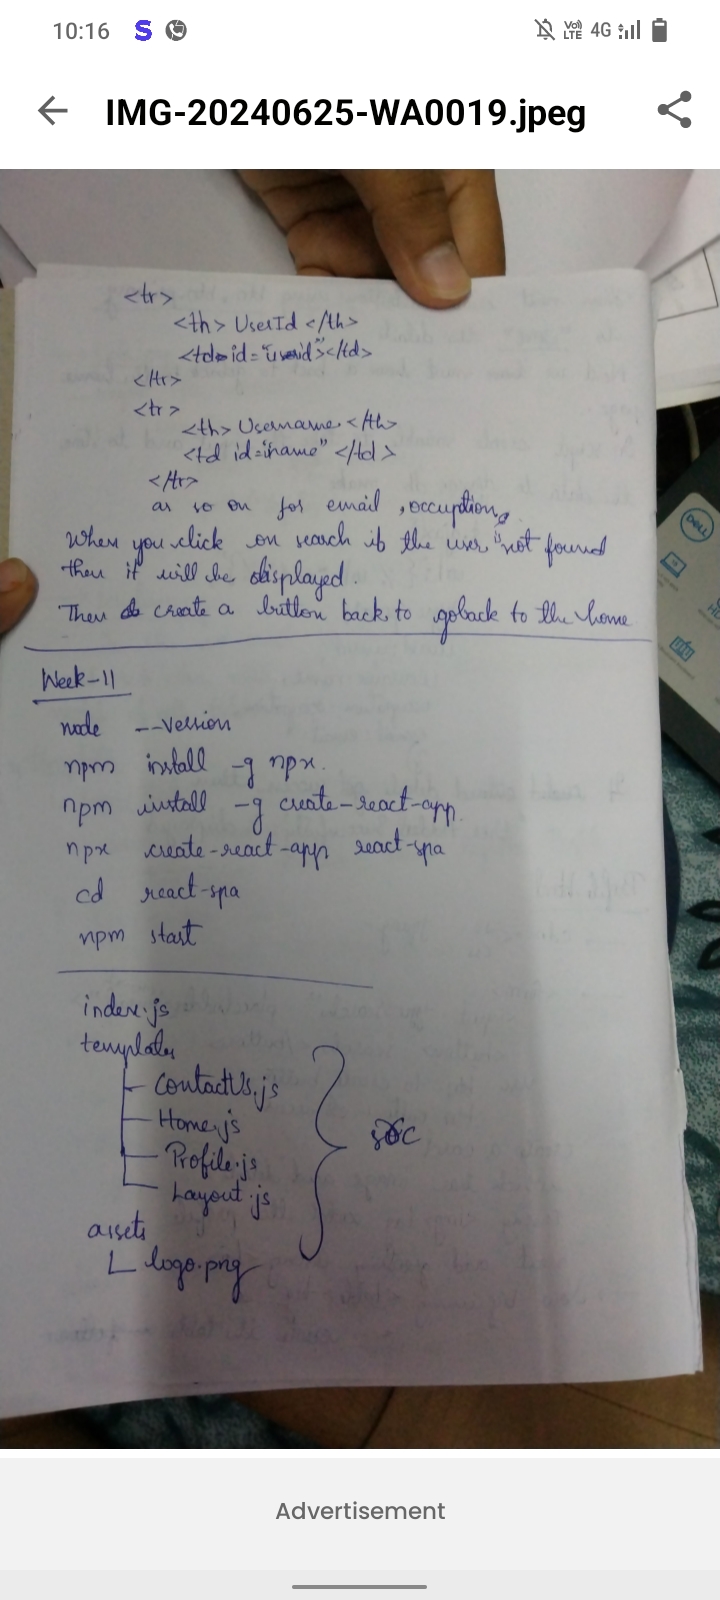 10:16 S Vo) LTE 4G
IMG-20240625-WA0019.jpeg
<tr>
<th> UserId </th>
<td id="userid"></td>
</tr>
<tr>
<th> Username </th>
<td id="name" </td>
</tr>
as so on for email, occuption,
When you click on search if the user is not found
then it will be displayed.
Then create a button back to goback to the home
Week-11
node --version
npm install -g npx.
npm install -g create-react-app.
npx create-react-app react-spa
cd react-spa
npm start
index.js
templates
ContactUs.js
Home.js
Profile.js
Layout.js
src
assets
logo.png
DELL
Advertisement